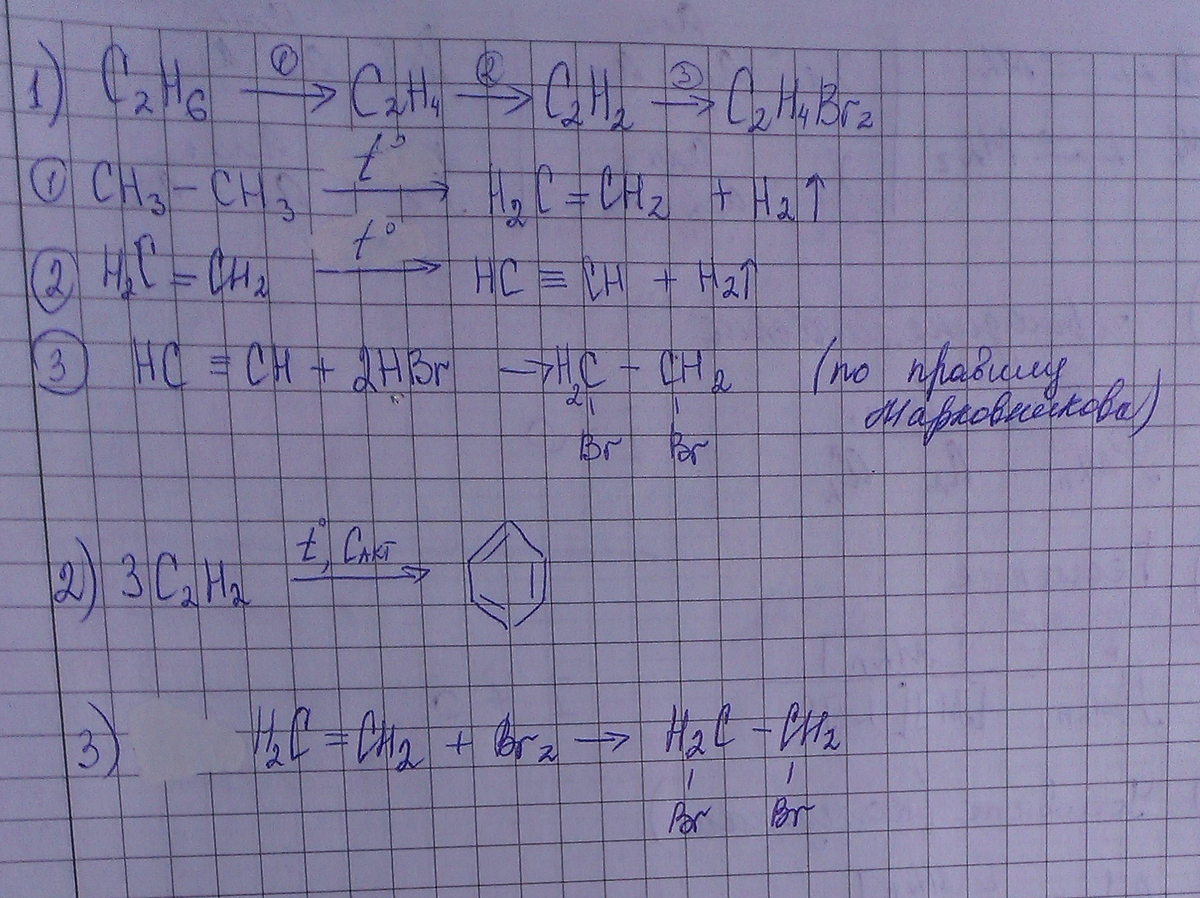 1) C₂H₆ —①→ C₂H₄ —②→ C₂H₂ —③→ C₂H₄Br₂
① CH₃ – CH₃ —t°→ H₂C = CH₂ + H₂↑
② H₂C = CH₂ —t°→ HC ≡ CH + H₂↑
③ HC ≡ CH + 2HBr → H₂C – CH₂ (по правилу
Br Br Марковникова)
2) 3C₂H₂ —t°, Cакт→
3) H₂C = CH₂ + Br₂ → H₂C – CH₂
Br Br